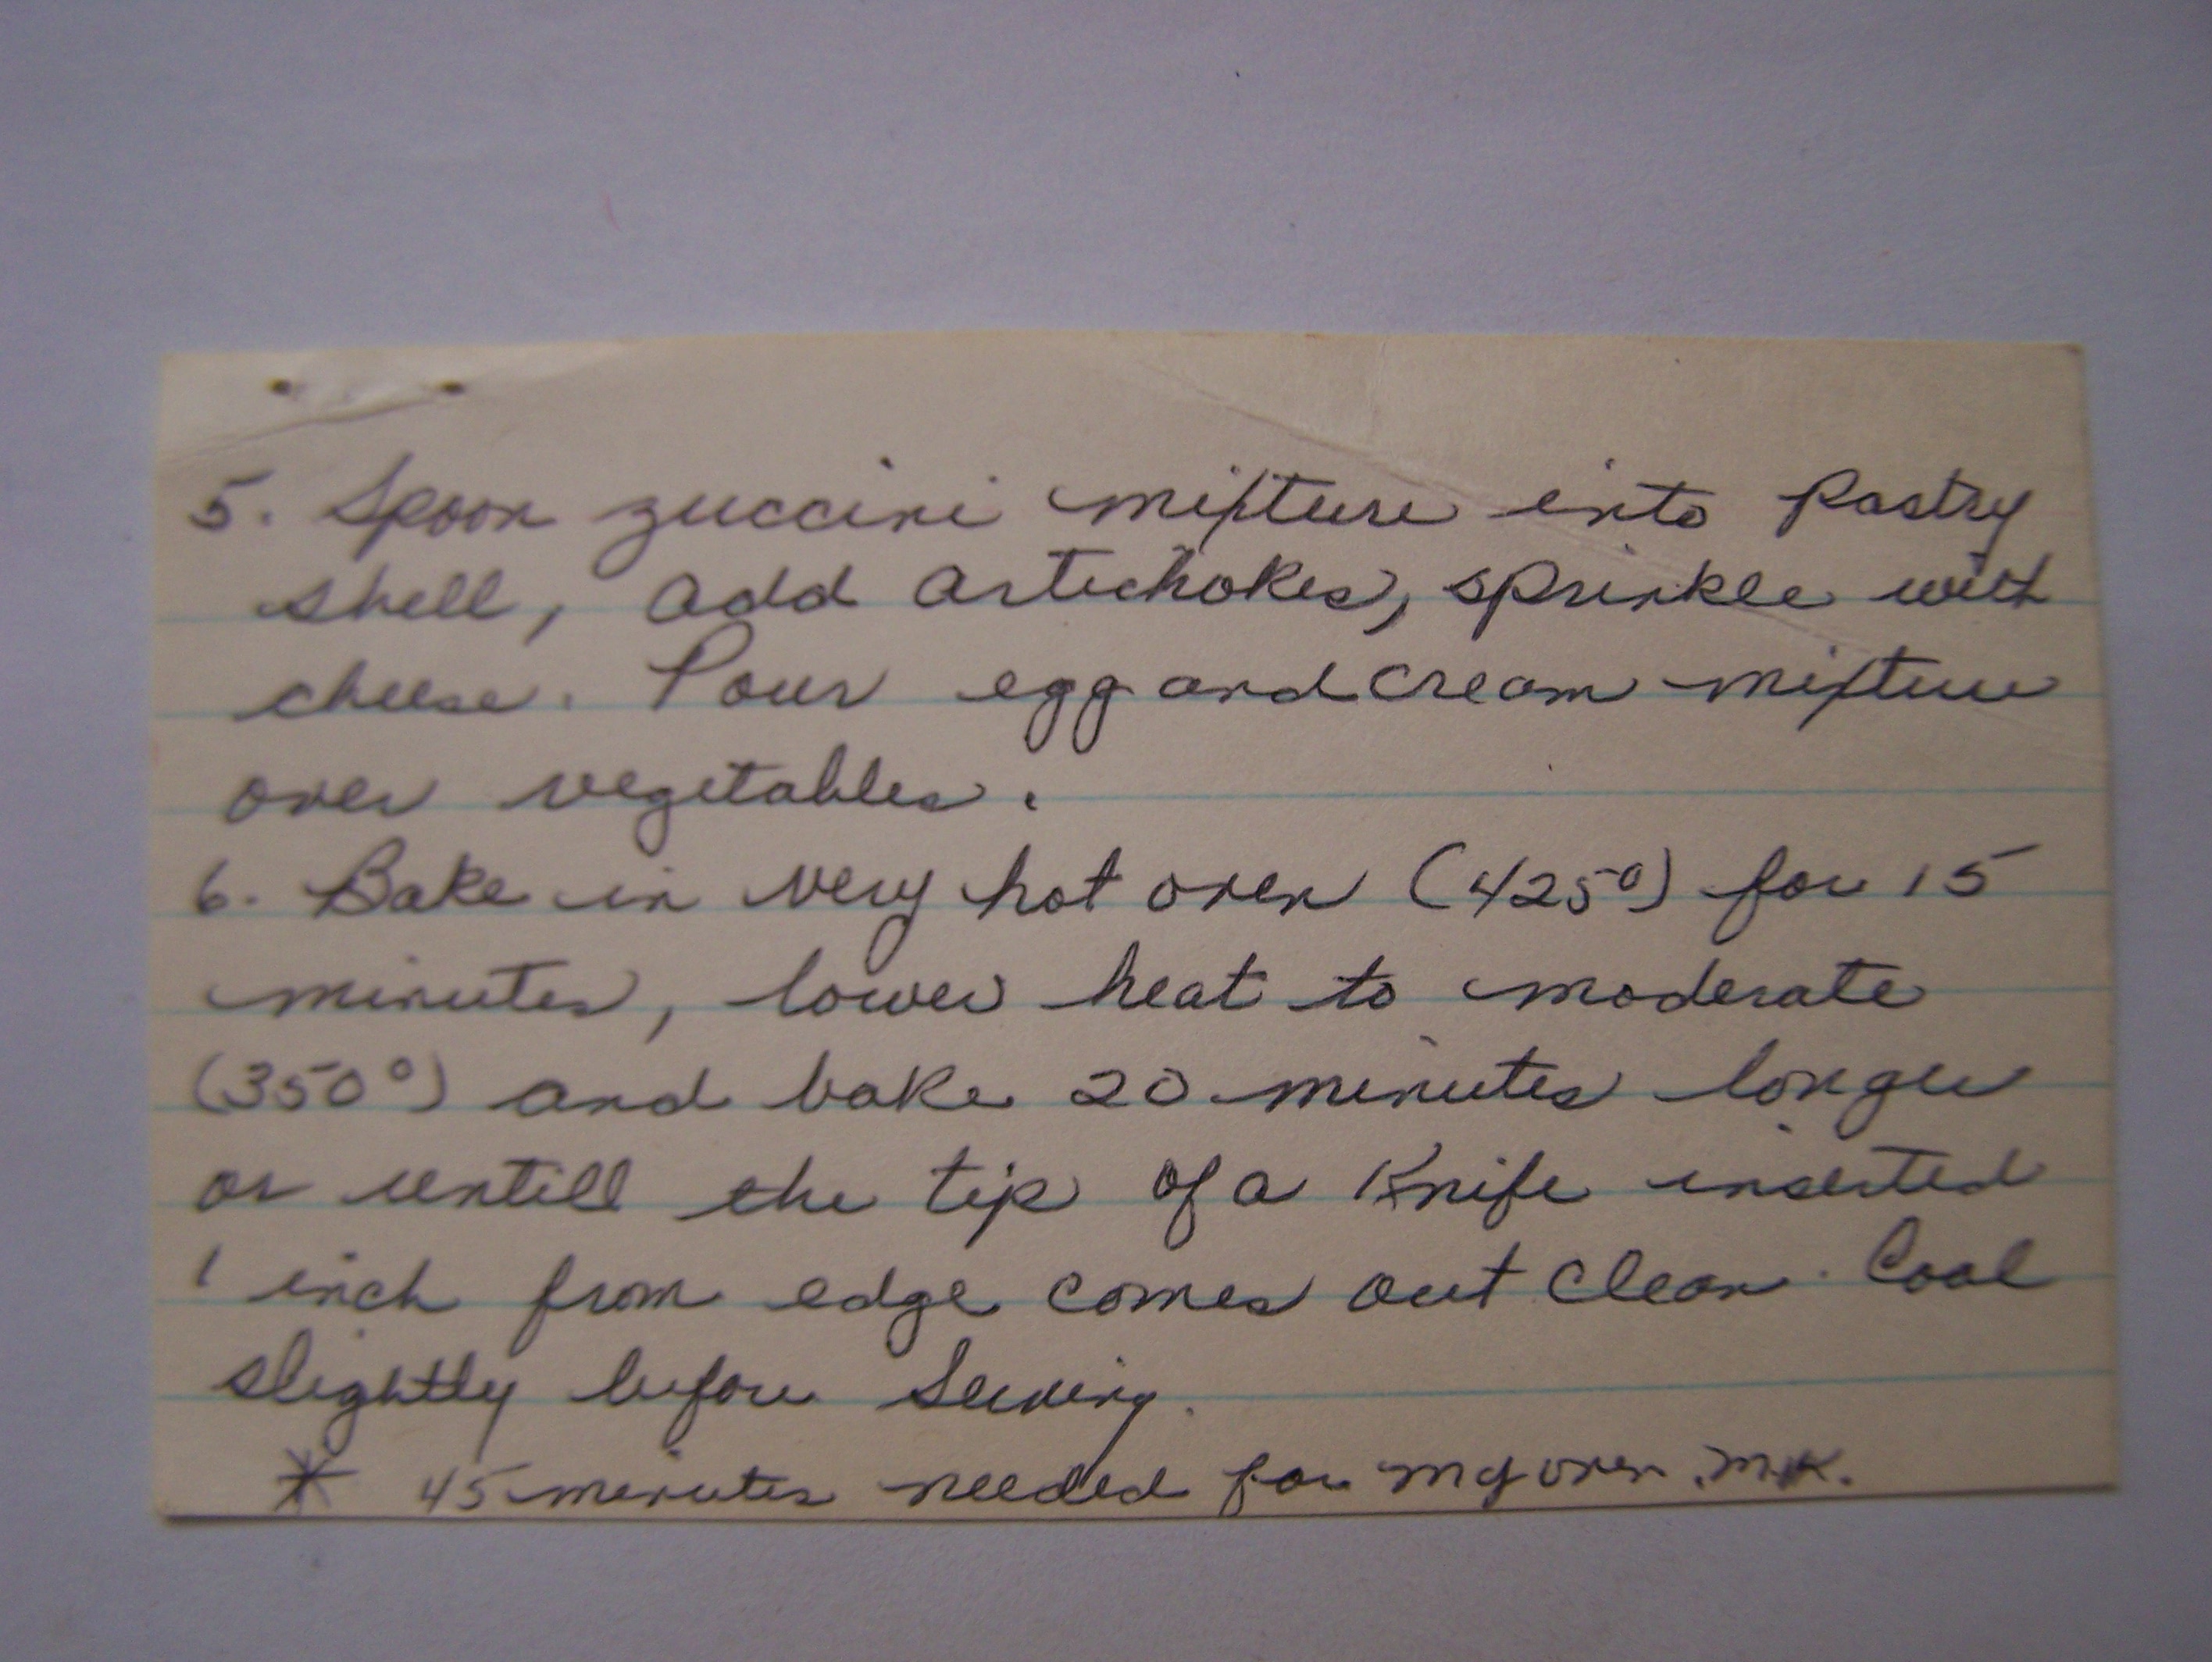 5. Spoon zuccini mixture into Pastry
shell, add artichokes, sprinkle with
cheese. Pour egg and cream mixture
over vegetables.
6. Bake in very hot oven (425°) for 15
minutes, lower heat to moderate
(350°) and bake 20 minutes longer
or untill the tip of a Knife inserted
1 inch from edge comes out clean. Cool
slightly before Serving.
* 45 minutes needed for my oven. M.K.